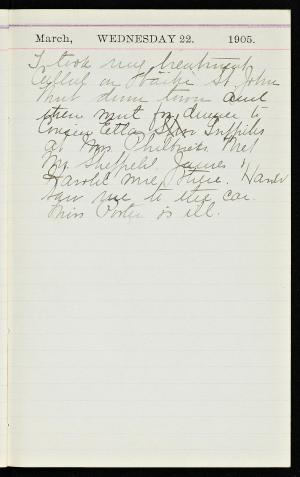 March, WEDNESDAY 22. 1905.
I took my treatment
Called on St. John
down town and
then went for dinner to
Cousin Etta
at Mrs. Met
Mr. Sheffield James &
Harold were there. Harold
saw me to the car.
Miss Porter is ill.